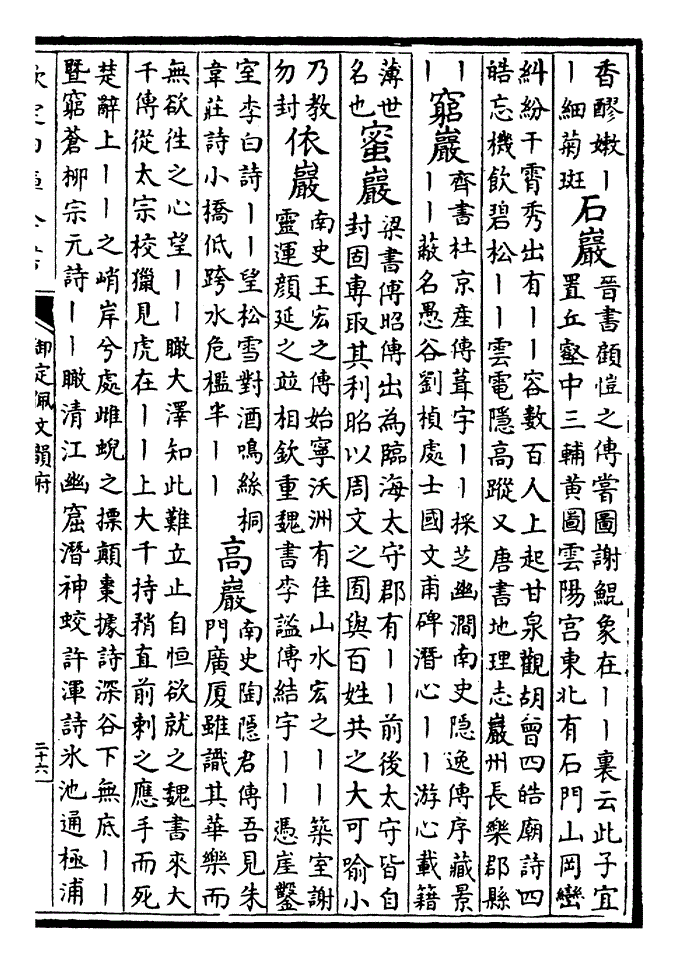 香醪嫩｜
｜細菊斑
石巖
晉書顧愷之傳嘗圖謝鯤象在｜｜裏云此子宜
置丘壑中三輔黃圖雲陽宮東北有石門山岡巒
糾紛干霄秀出有｜｜容數百人上起甘泉觀胡曾四皓廟詩四
皓忘機飲碧松｜｜雲電隱高蹤又唐書地理志巖州長樂郡縣
｜
｜
窮巖
齊書杜京產傳葺宇｜｜採芝幽澗南史隱逸傳序藏景
｜｜蔽名愚谷劉楨處士國文甫碑潛心｜｜游心載籍
薄世
名也
蜜巖
梁書傅昭傳出為臨海太守郡有｜｜前後太守皆自
封固專取其利昭以周文之囿與百姓共之大可喻小
乃教
勿封
依巖
南史王宏之傳始寧沃洲有佳山水宏之｜｜築室謝
靈運顏延之並相欽重魏書李謐傳結宇｜｜憑崖鑿
室李白詩｜｜望松雪對酒鳴絲桐
韋莊詩小橋低跨水危檻半｜｜
高巖
南史陶隱君傳吾見朱
門廣厦雖識其華樂而
無欲徃之心望｜｜瞰大澤知此難立止自恒欲就之魏書來大
千傳從太宗校獵見虎在｜｜上大千持稍直前刺之應手而死
楚辭上｜｜之峭岸兮處雌蜺之摽顛棗據詩深谷下無底｜｜
暨窮蒼柳宗元詩｜｜瞰清江幽窟潛神蛟許渾詩氷池通極浦
欽定四庫全書
御定佩文韻府
二十六